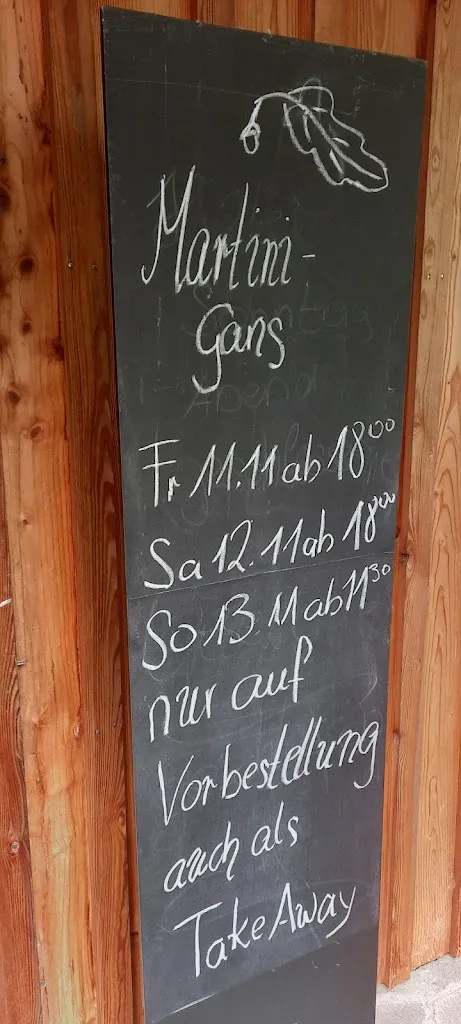 Martini-
Gans
Fr 11.11 ab 18⁰⁰
Sa 12.11 ab 18⁰⁰
So 13.11 ab 11³⁰
nur auf
Vorbestellung
auch als
Take Away